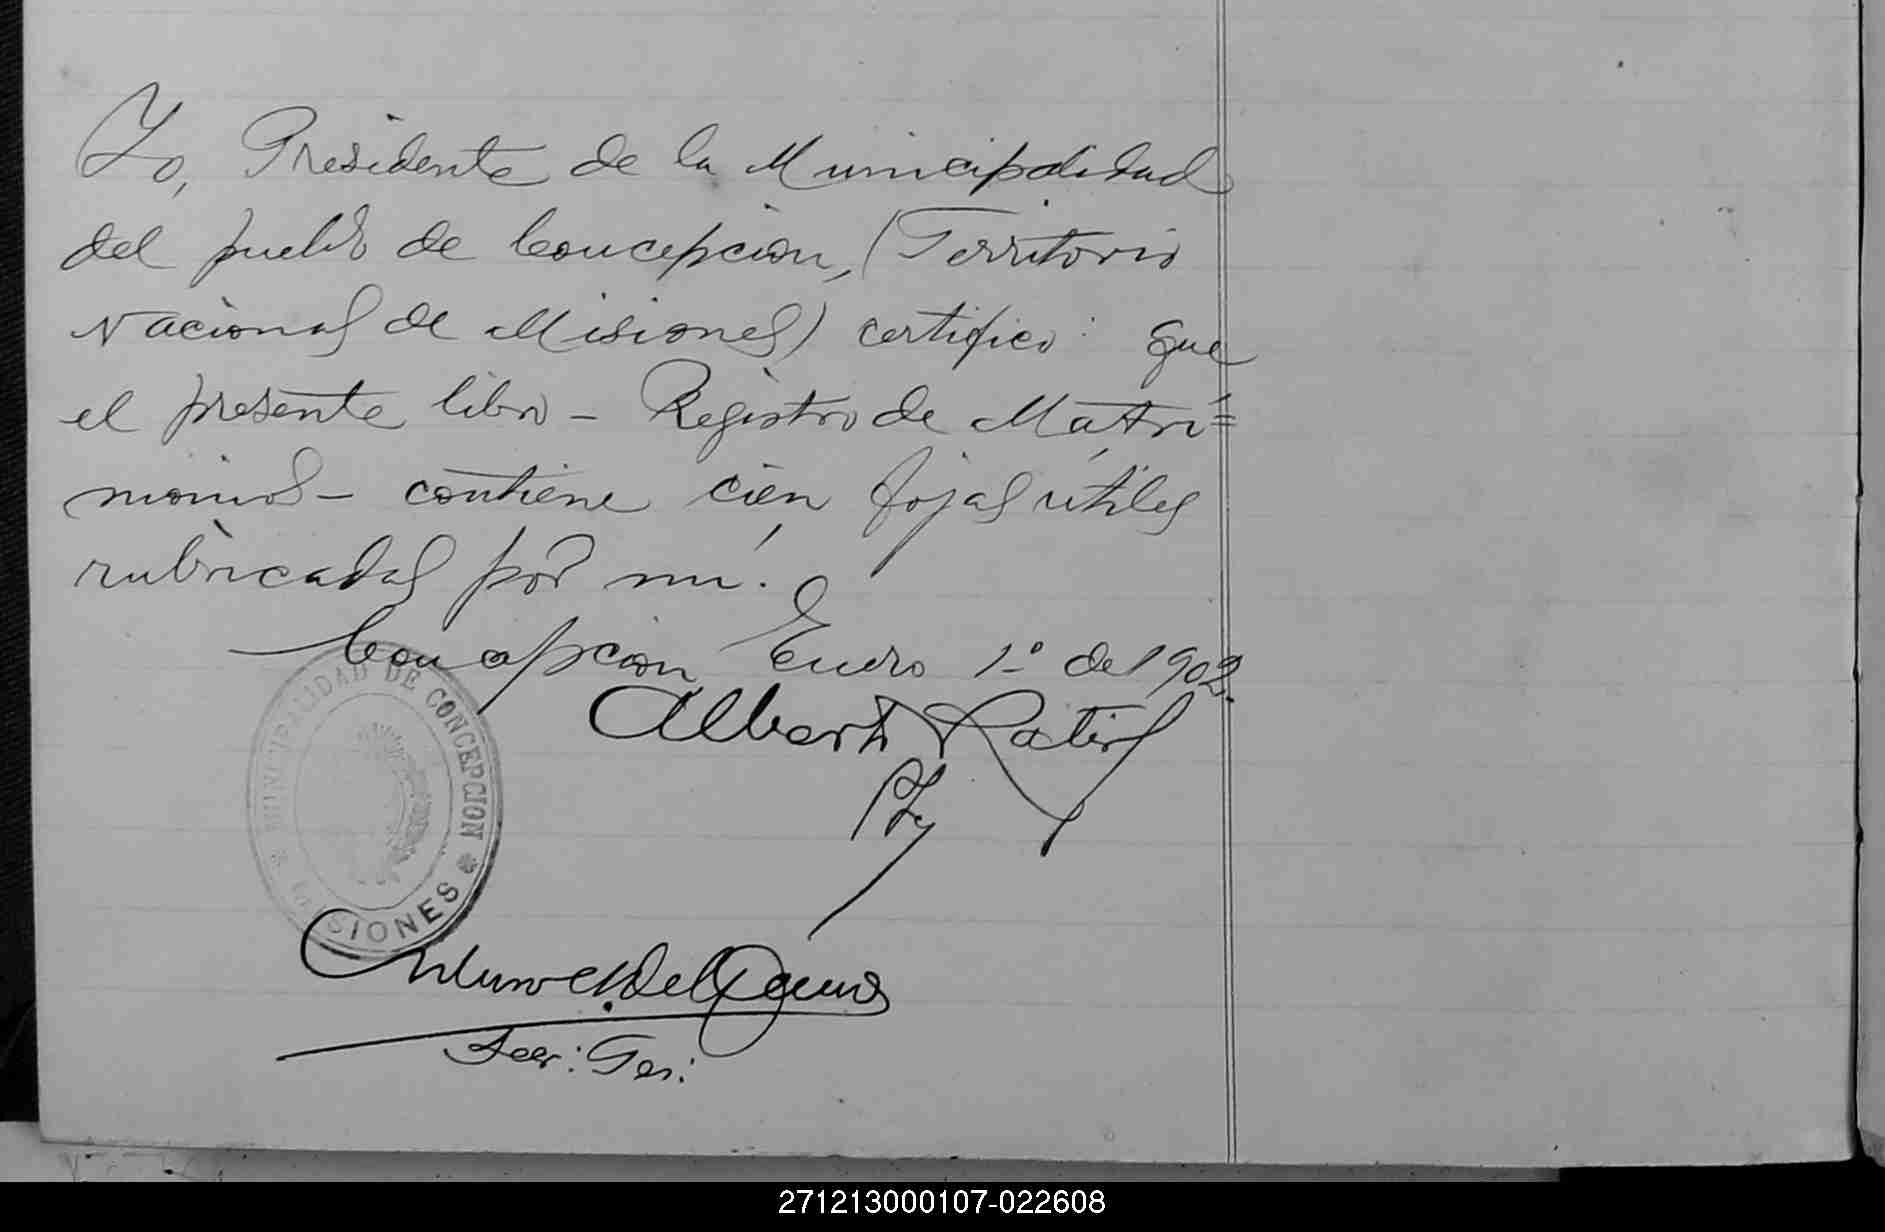 Yo, Presidente de la Municipalidad
del pueblo de Concepción, (Territorio
Nacional de Misiones) certifico: que
el presente libro - Registro de Matri=
monios - contiene cien fojas útiles
rubricadas por mí.
Concepción Enero 1º de 1902.
Alberto
MUNICIPALIDAD DE CONCEPCION
* MISIONES *
271213000107-022608